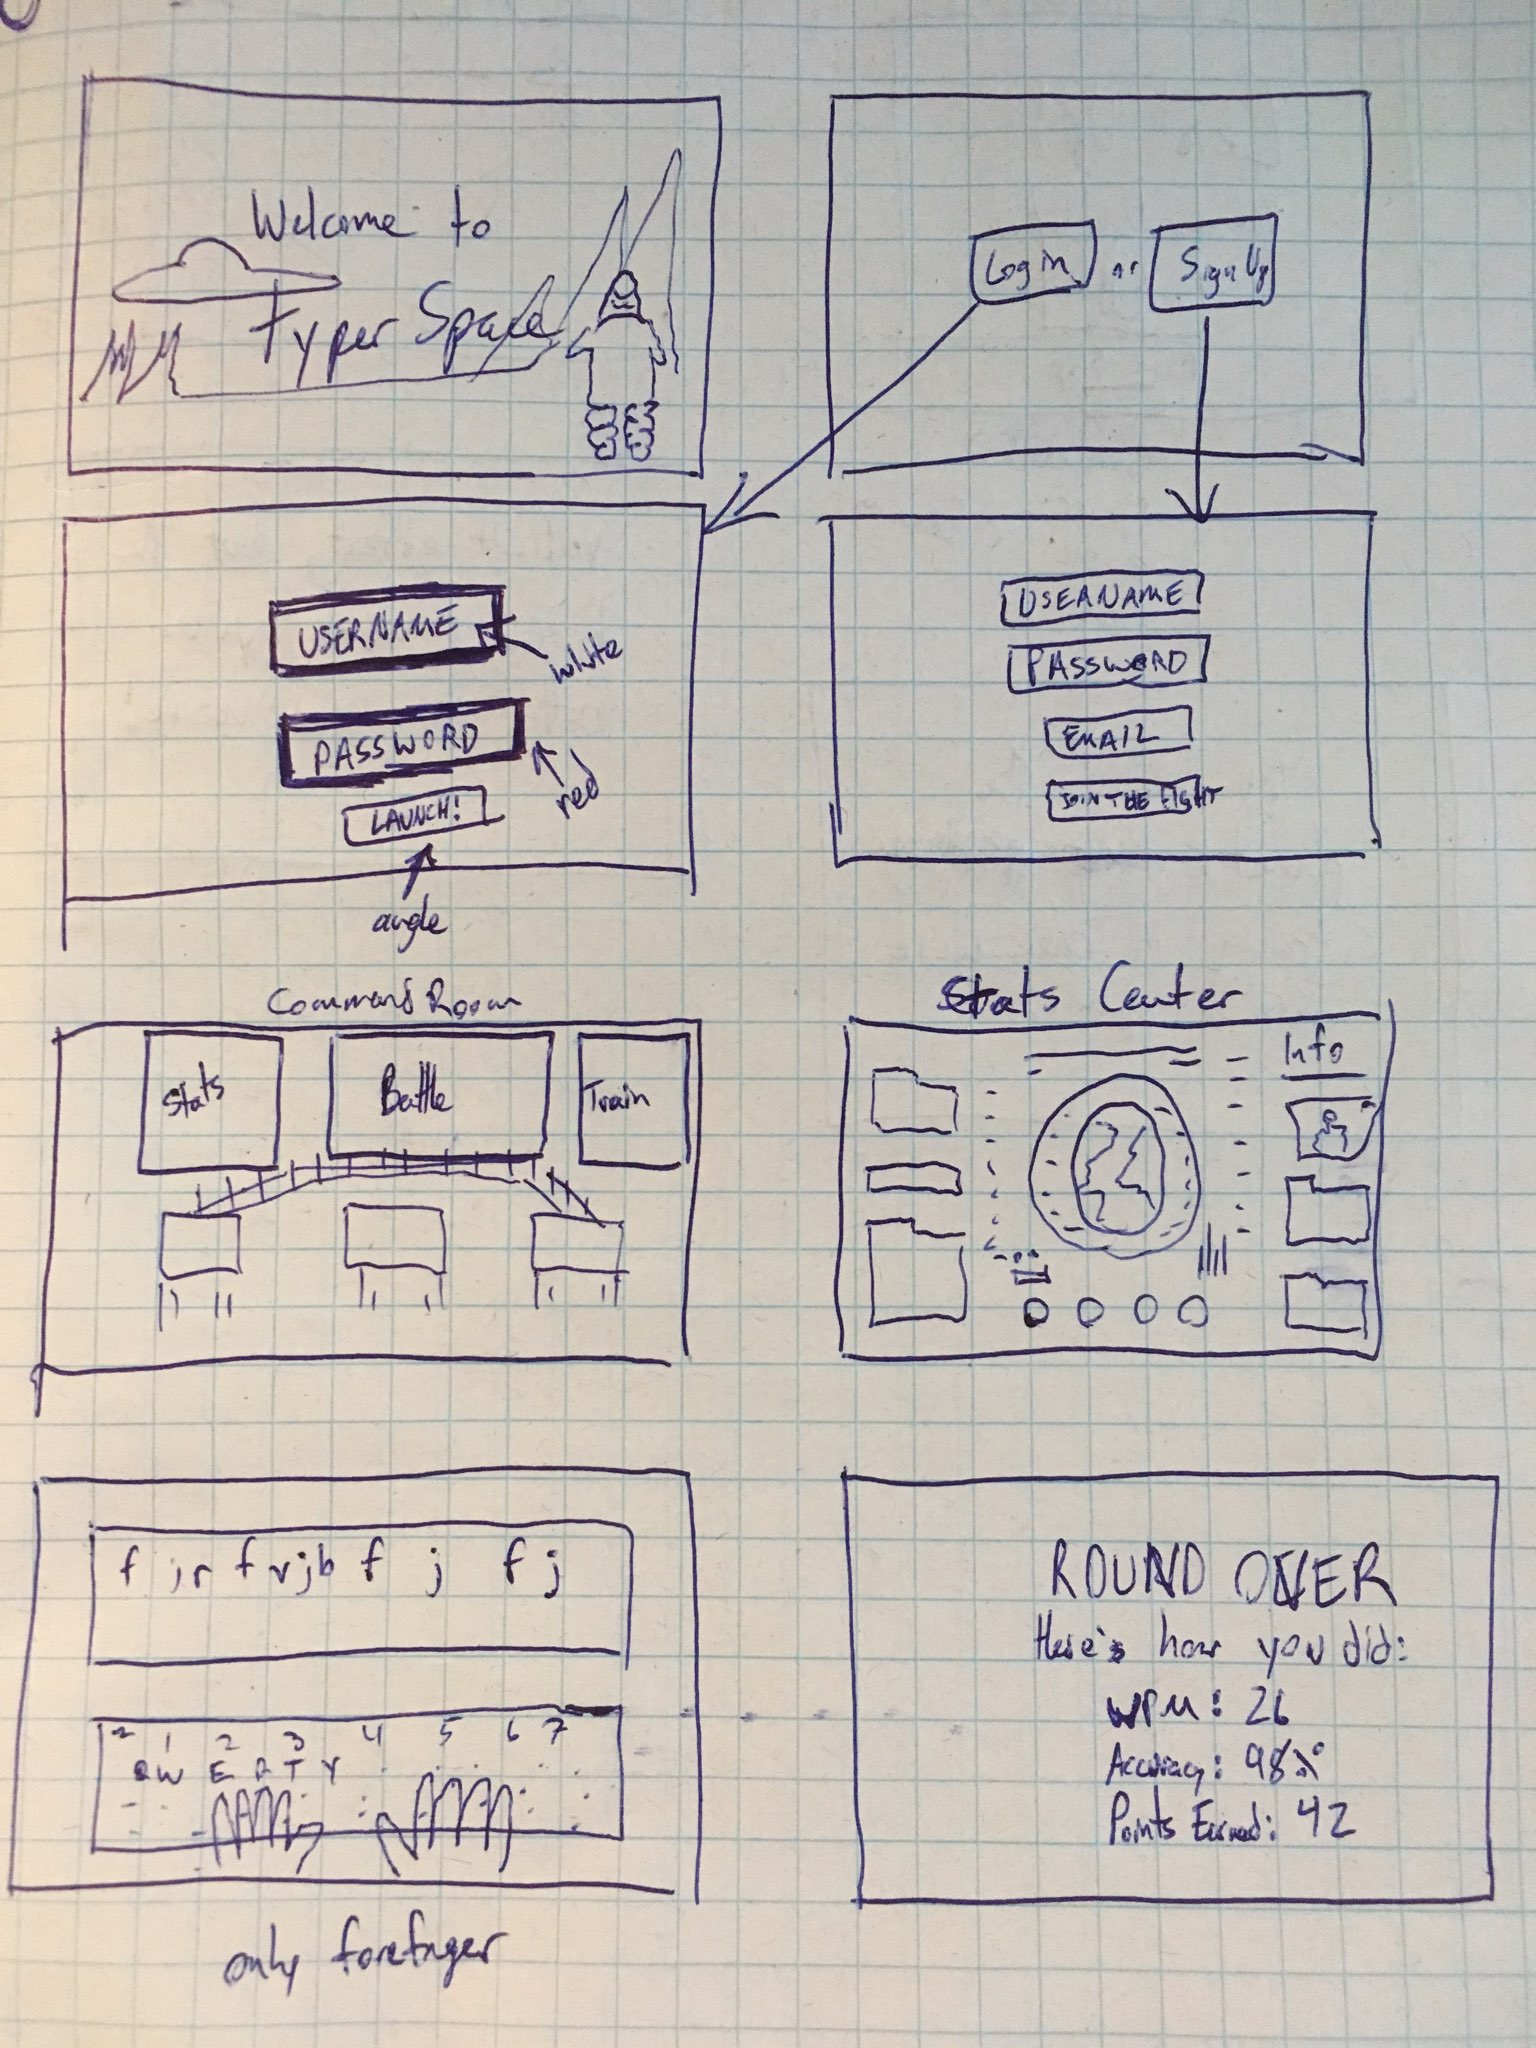 Welcome to
Typer Space
Login or Sign Up
USERNAME
white
PASSWORD
red
LAUNCH!
angle
USERNAME
PASSWORD
EMAIL
JOIN THE FIGHT
Command Room
Stats Battle Train
Stats Center
Info
f j r f v j b f j f j
1 2 3 4 5 6 7
Q W E R T Y
only forefinger
ROUND OVER
Here's how you did:
WPM: 26
Accuracy: 98%
Points Earned: 42